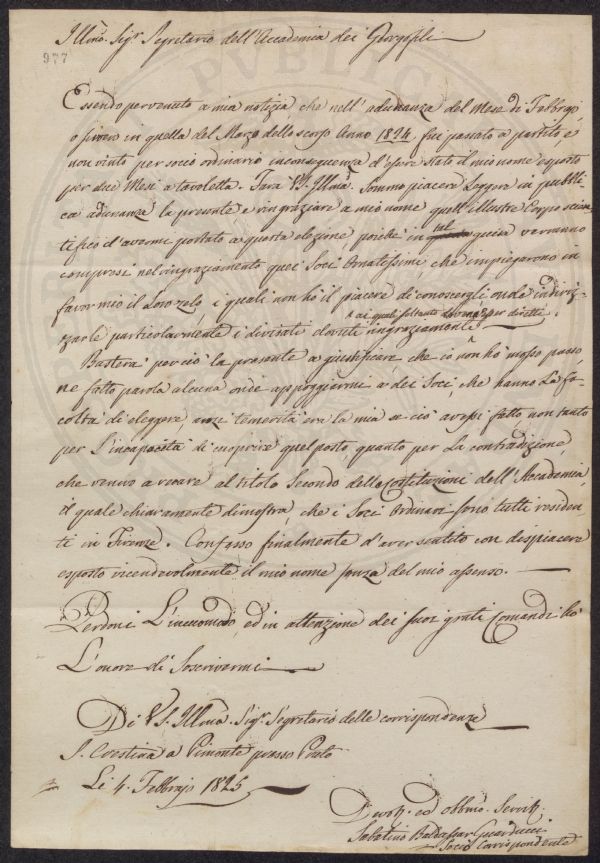 Illmo. Sigr. Segretario dell'Accademia dei Georgofili
977
Essendo pervenuto a mia notizia che nell'adunanza del Mese di Febbrajo
o sivero in quella del Marzo dello scorso Anno 1824, fui passato a partito e
non vinto per socio ordinario in conseguenza d'essere stato il mio nome esposto
per due Mesi a tavoletta. Sarà VS. Illma. sommo piacere leggere in pubbli
ca adunanza la presente e ringraziare a mio nome quell'illustre Corpo scien
tifico d'avermi portato a questa elezione, poichè in tal guisa verranno
compresi nel ringraziamento quei Soci Ornatissimi che impiegarono in
favor mio il Loro zelo, i quali non hò il piacere di conoscergli onde indiriz
ai quali soltanto per diretti
zarle particolarmente i divisati dovuti ringraziamenti.
Basterà perciò la presente a giustificare, che io non hò mosso passo,
ne fatto parola alcuna onde appoggiarmi a dei Soci, che hanno La fa
coltà di eleggere anzi temerità era la mia se ciò avessi fatto non tanto
per l'incapacità di cuoprire quel posto, quanto per la contradizione,
che venivo a recare al titolo Secondo delle Costituzioni dell'Accademia
il quale chiaramente dimostra, che i Soci Ordinari sono tutti residen
ti in Firenze. Confesso finalmente d'aver sentito con despiacere
esposto vicendevolmente il mio nome senza del mio assenso.
Perdoni L'incomodo, ed in attenzione dei suoi grati Comandi hò
L'onore di Soscrivermi
Di VS. Illma. Sigr. Segretario delle corrispondenze
S. Cristina a Pimonte presso Prato
Li 4. Febbrajo 1825
Devotmo. ed obblmo. Servitre.
Sabatino Baldassar Guarducci
Socio Corrispondente